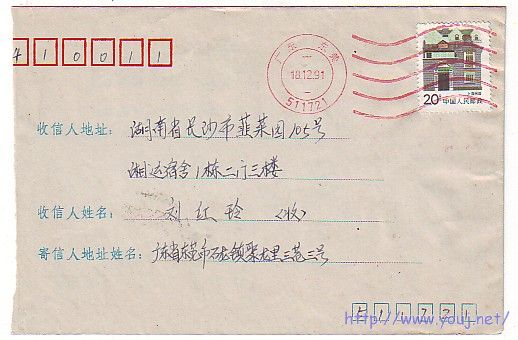 410011
广东 东莞
18.12.91
511721
20分
中国人民邮政
收信人地址: 湖南省长沙市韭菜园105号
湘运宿舍1栋二门三楼
收信人姓名: 刘红玲 (收)
寄信人地址姓名: 广东省东莞市石龙镇聚龙里三巷三号
511721
http://www.youj.net/